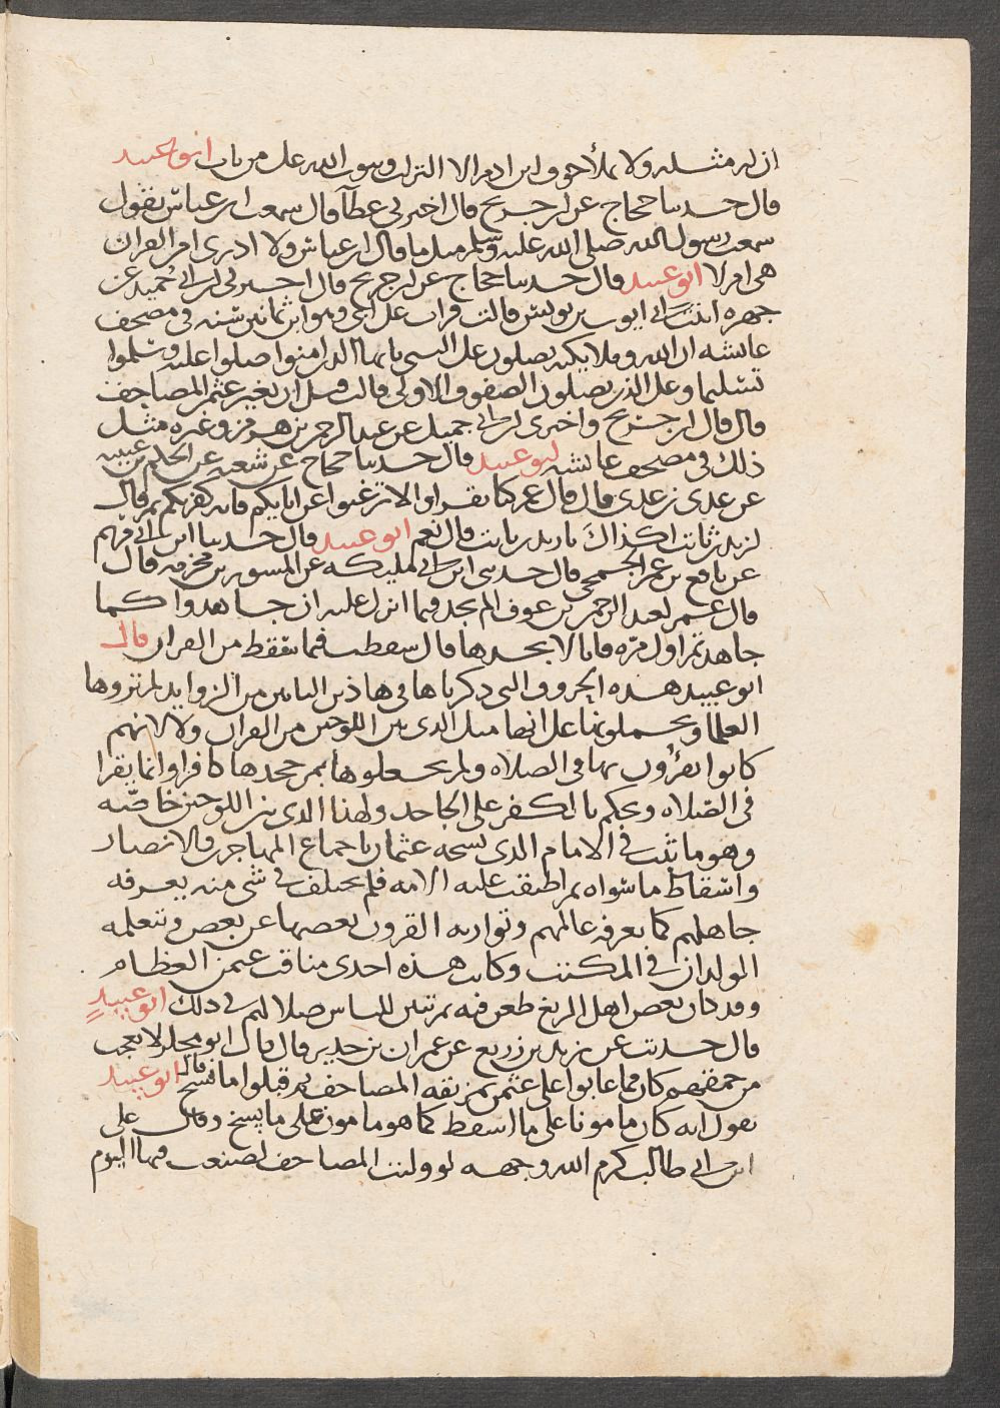 ان له مثله ولا يملأ جوف ابن ادم الا التراب ويتوب الله على من تاب ابو عبيد
قال حدثنا حجاج عن ابن جريج قال اخبرني عطآ قال سمعت ابن عباس يقول
سمعت رسول الله صلى الله عليه وسلم مثل ما قال ابن عباس ولا ادري امن القران
هي ام لا ابو عبيد قال حدثنا حجاج عن ابن جريج قال اخبرني ابن ابي حميد عن
جهره ابنت ابي ايوب بن يونس قالت قرا علي ابي وهو ابن ثمانين سنه في مصحف
عايشه ان الله وملايكته يصلون على النبي يايها الذين امنوا صلوا عليه وسلموا
تسليما وعلى الذين يصلون الصفوف الاولى قالت قبل ان يغير عثمن المصاحف
قال قال ابن جريج واخبرني ابن ابي جميل عن عبد الرحمن بن هرمز وغيره مثل
ذلك في مصحف عايشه ابو عبيد قال حدثنا حجاج عن شعبه عن الحكم بن عتيبه
عن عدي بن عدي قال قال عمر كنا نقرا الا ترغبوا عن ابايكم فانه كفر بكم ثم قال
لزيد بن ثابت اكذاك يا زيد بن ثابت قال نعم ابو عبيد قال حدثنا ابن ابي مريم
عن نافع بن عمر الجمحي قال حدثني ابن ابي مليكه عن المسور بن مخرمه قال
قال عمر لعبد الرحمن بن عوف الم تجد فيما انزل علينا ان جاهدوا كما
جاهدتم اول مره فانا لا نجدها قال سقطت فيما سقط من القران قال
ابو عبيد هذه الحروف التي ذكرناها في هاذين البابين من الزوايد لم تروها
العلما ويحملونها على انها مثل الذي بين اللوحين من القران ولا لانهم
كانوا يقرؤون بها في الصلاه ولم يجعلوها بمن جحدها كافرا وانما يقرا
في الصلاه ويحكم بالكفر على الجاحد ولهذا الذي بين اللوحين خاصه
وهو ما ثبت في الامام الذي نسخه عثمان باجماع المهاجرين والانصار
واسقاط ما سواه ثم اطبقت عليه الامه فلم يختلف في شي منه يعرفه
جاهلهم كما يعرفه عالمهم وتوارثه القرون بعضها عن بعض وتتعلمه
الولدان في المكتب وكانت هذه احدى مناقب عثمن العظام
وقد كان بعض اهل الزيغ طعن فيه ثم تبين للناس ضلالهم في ذلك ابو عبيد
قال حدثت عن يزيد بن زريع عن عمران بن حدير قال قال ابو مجلز الا تعجب
من حمقهم كان مما عابوا على عثمن تمزيقه المصاحف ثم قبلوا ما نسخ قال ابو عبيد
يقول انه كان مامونا على ما اسقط كما هو مامون على ما نسخ وقال علي
ابن ابي طالب كرم الله وجهه لو وليت المصاحف لصنعت فيها اليوم